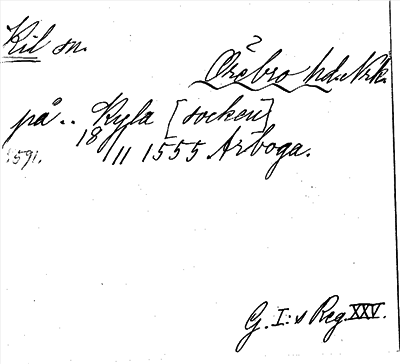 Kil sn.
Örebro hd. Nrk.
på .. Kyla [socken]
18/11 1555 Arboga.
1591.
G. I:s Reg. XXV.